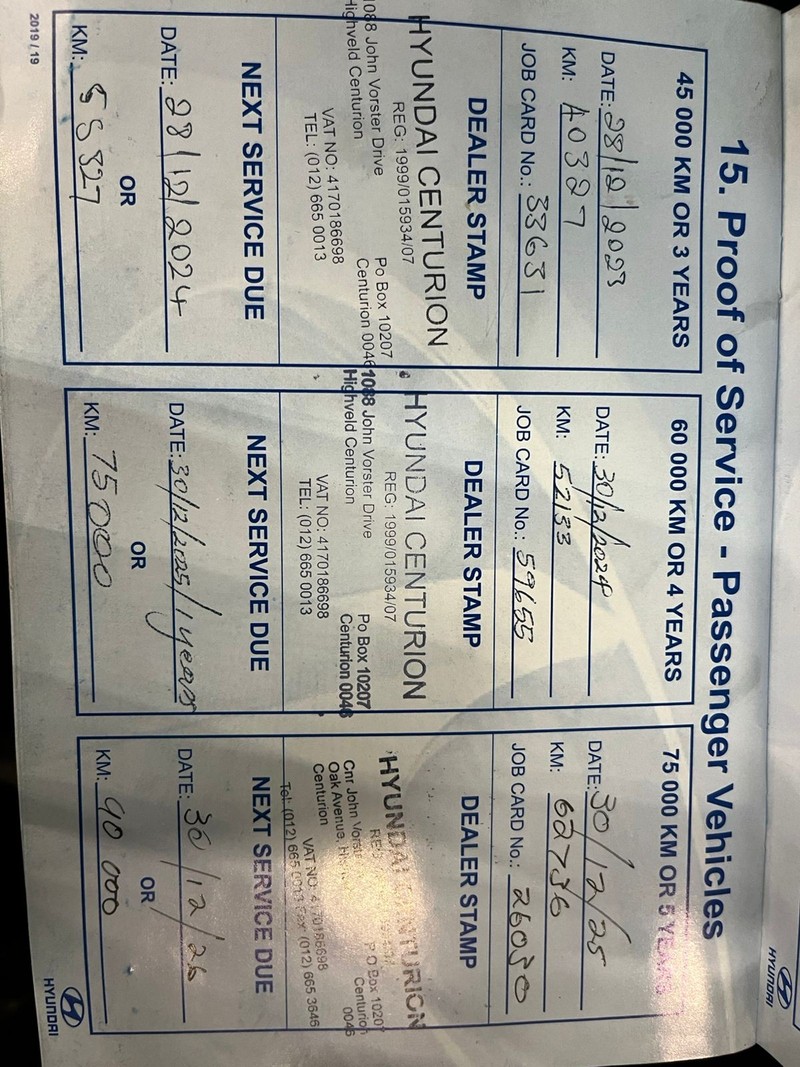 15. Proof of Service - Passenger Vehicles
45 000 KM OR 3 YEARS
DATE: 28/12/2023
KM: 40327
JOB CARD No.: 33631
DEALER STAMP
HYUNDAI CENTURION
REG: 1999/015934/07
1088 John Vorster Drive
Highveld Centurion
Po Box 10207
Centurion 0046
VAT NO: 4170186698
TEL: (012) 665 0013
NEXT SERVICE DUE
DATE: 28/12/2024
OR
KM: 55327
60 000 KM OR 4 YEARS
DATE: 30/12/2024
KM: 52133
JOB CARD No.: 59655
DEALER STAMP
HYUNDAI CENTURION
REG: 1999/015934/07
1088 John Vorster Drive
Highveld Centurion
Po Box 10207
Centurion 0046
VAT NO: 4170186698
TEL: (012) 665 0013
NEXT SERVICE DUE
DATE: 30/12/2025/1years
OR
KM: 75000
75 000 KM OR 5 YEARS
DATE: 30/12/25
KM: 62736
JOB CARD No.: 26050
DEALER STAMP
HYUNDAI CENTURION
Cnr John
Oak Avenue,
Centurion
P O Box 10207
Centurion
0046
VAT NO: 4170186698
Tel: (012) 665 0013 Fax: (012) 665 3646
NEXT SERVICE DUE
DATE: 30/12/26
OR
KM: 90 000
2019 / 19
HYUNDAI
HYUNDAI